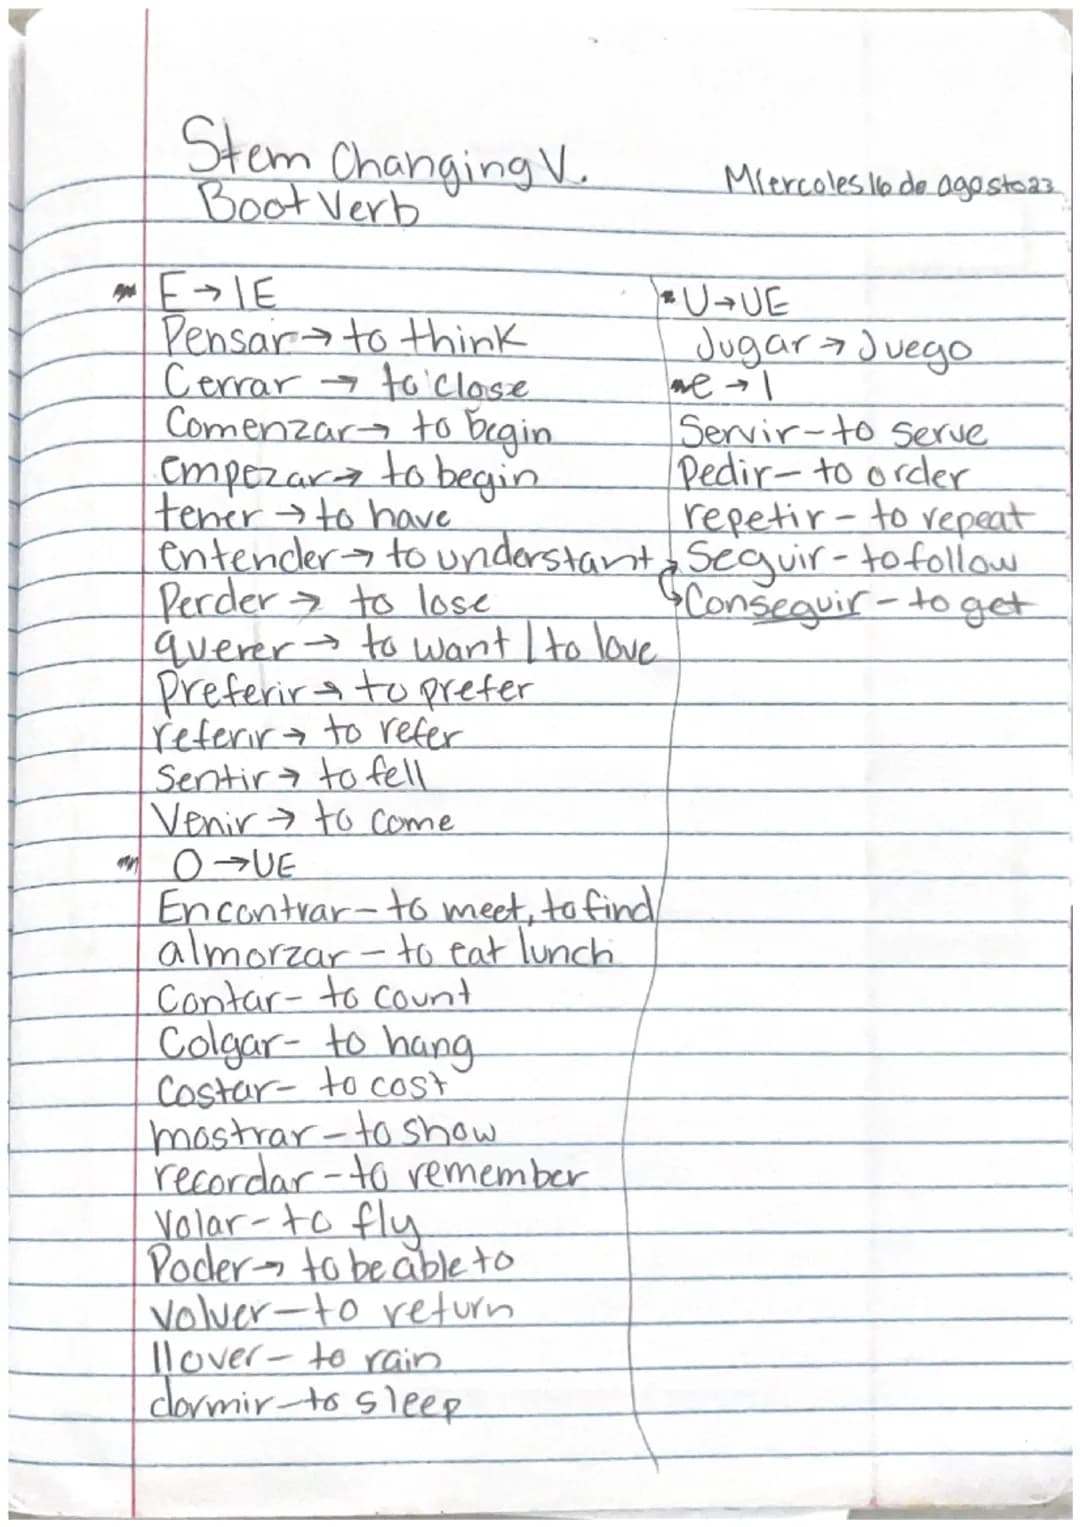 Stem Changing V.
Boot Verb
Miercoles 16 de agosto 23
E → IE
Pensar → to think
Cerrar → to close
Comenzar → to begin
empezar → to begin
tener → to have
entender → to understant
Perder → to lose
querer → to want | to love
Preferir → to prefer
referir → to refer
Sentir → to fell
Venir → to come
O → UE
Encontrar - to meet, to find
almorzar - to eat lunch
Contar - to count
Colgar - to hang
Costar - to cost
mostrar - to show
recordar - to remember
Volar - to fly
Poder → to be able to
Volver - to return
llover - to rain
dormir - to sleep
U → UE
Jugar → Juego
e → I
Servir - to serve
Pedir - to order
repetir - to repeat
Seguir - to follow
Conseguir - to get